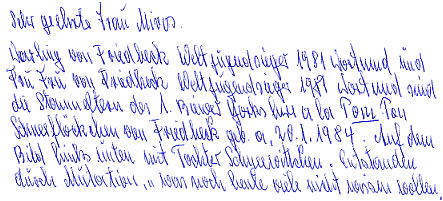 Sehr geehrte Frau Miros.
Darling von Friedheck Weltjugendsieger 1981 Dortmund und
Frou Frou von Friedheck Weltjugendsieger 1981 Dortmund sind
die Stammeltern des 1. Biewer Yorkshire a la Pom Pon
Schneeflöckchen von Friedheck geb. a, 20.1.1984. Auf dem
Bild links unten mit Tochter Schneewittchen. Entstanden
durch Mutation, was noch heute viele nicht wissen wollen.